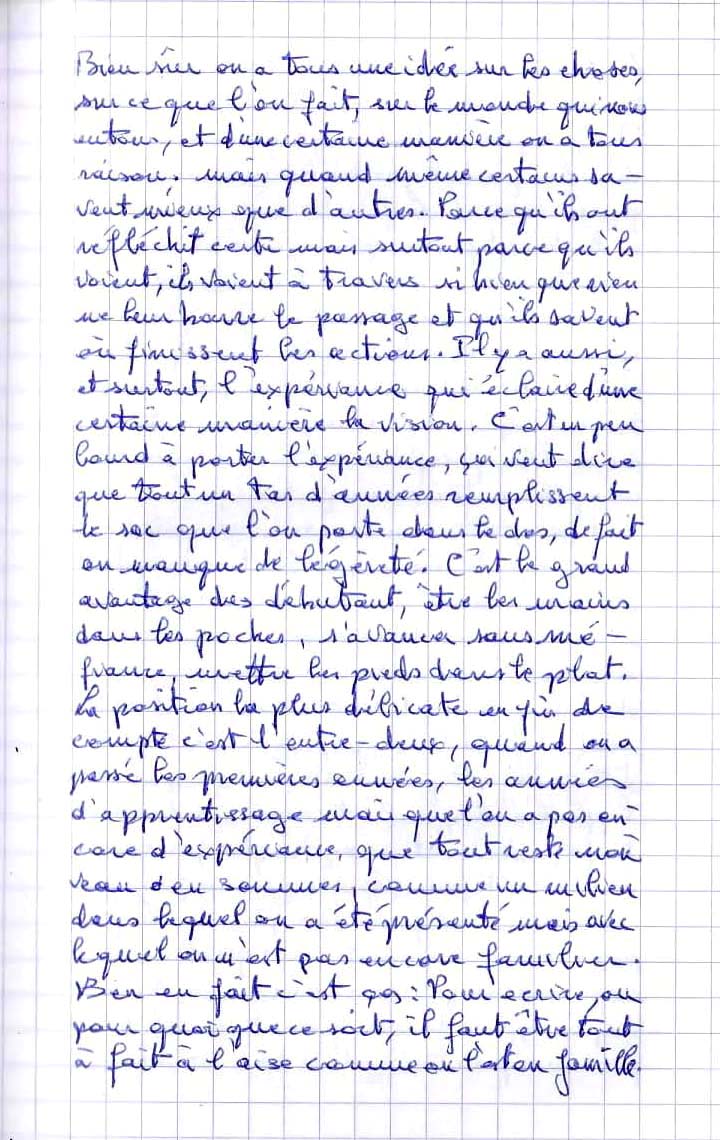 Bien sûr on a tous une idée sur les choses,
sur ce que l'on fait, sur le monde qui nous
entoure, et d'une certaine manière on a tous
raison. mais quand même certains sa-
vent mieux que d'autres. Parce qu'ils ont
réfléchit certe mais surtout parce qu'ils
voient, ils voient à travers si bien que rien
ne leur barre le passage et qu'ils savent
où finissent les actions. Il y a aussi,
et surtout, l'expérience qui éclaire d'une
certaine manière la vision. C'est un peu
lourd à porter l'expérience, ça veut dire
que tout un tas d'années remplissent
le sac que l'on porte dans le dos, de fait
on manque de légèreté. C'est le grand
avantage des débutant, être les mains
dans les poches, s'avancer sans mé-
fiance, mettre les pieds dans le plat.
La position la plus délicate en fin de
compte c'est l'entre-deux, quand on a
passé les premières années, les années
d'apprentissage mais que l'on a pas en-
core d'expérience, que tout reste nou
veau en somme, comme un milieu
dans lequel on a été présenté mais avec
lequel on n'est pas encore familier.
Ben en fait c'est ça : Pour écrire, ou
pour quoi que ce soit, il faut être tout
à fait à l'aise comme on l'est en famille.